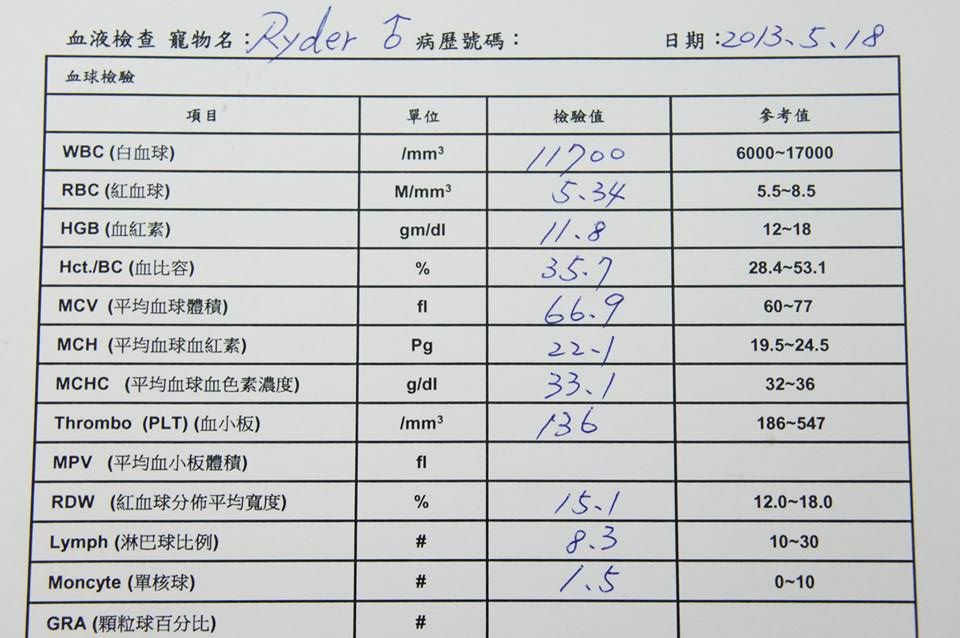 血液檢查 寵物名：Ryder ♂ 病歷號碼： 日期：2013.5.18
血球檢驗
項目 單位 檢驗值 參考值
WBC (白血球) /mm³ 11700 6000~17000
RBC (紅血球) M/mm³ 5.34 5.5~8.5
HGB (血紅素) gm/dl 11.8 12~18
Hct./BC (血比容) % 35.7 28.4~53.1
MCV (平均血球體積) fl 66.9 60~77
MCH (平均血球血紅素) Pg 22.1 19.5~24.5
MCHC (平均血球血色素濃度) g/dl 33.1 32~36
Thrombo (PLT) (血小板) /mm³ 136 186~547
MPV (平均血小板體積) fl
RDW (紅血球分佈平均寬度) % 15.1 12.0~18.0
Lymph (淋巴球比例) # 8.3 10~30
Moncyte (單核球) # 1.5 0~10
GRA (顆粒球百分比) #